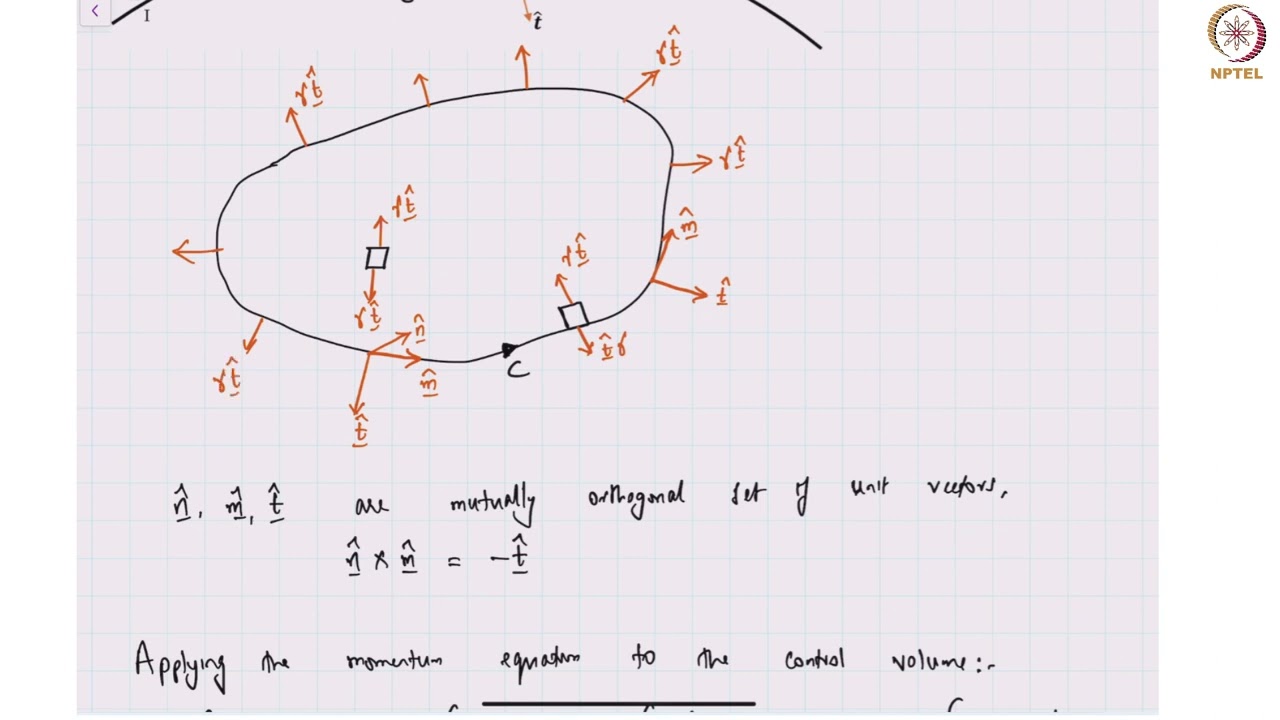 <
I
t̂
NPTEL
γt̂
γt̂
γt̂
γt̂
m̂
γt̂
t̂
γt̂
n̂
t̂γ
γt̂
m̂
C
t̂
n̂, m̂, t̂ are mutually orthogonal set of unit vectors,
n̂ × m̂ = -t̂
Applying the momentum equation to the control volume:-